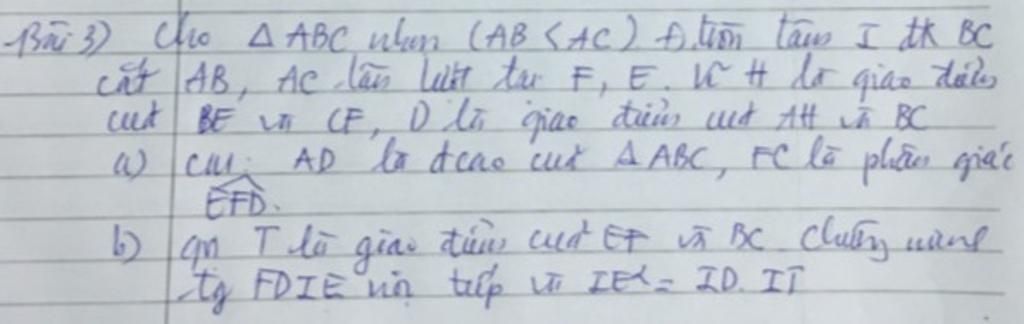 Bài 3) Cho △ ABC nhọn (AB < AC) Đ.tròn tâm I đk BC
cắt AB, AC lần lượt tại F, E. H là giao điểm
của BE và CF, D là giao điểm của AH và BC
a) cm: AD là đcao của △ ABC, FC là phân giác
EFD.
b) gọi T là giao điểm của EF và BC chứng minh
tg FDIE nội tiếp và IE² = ID. IT